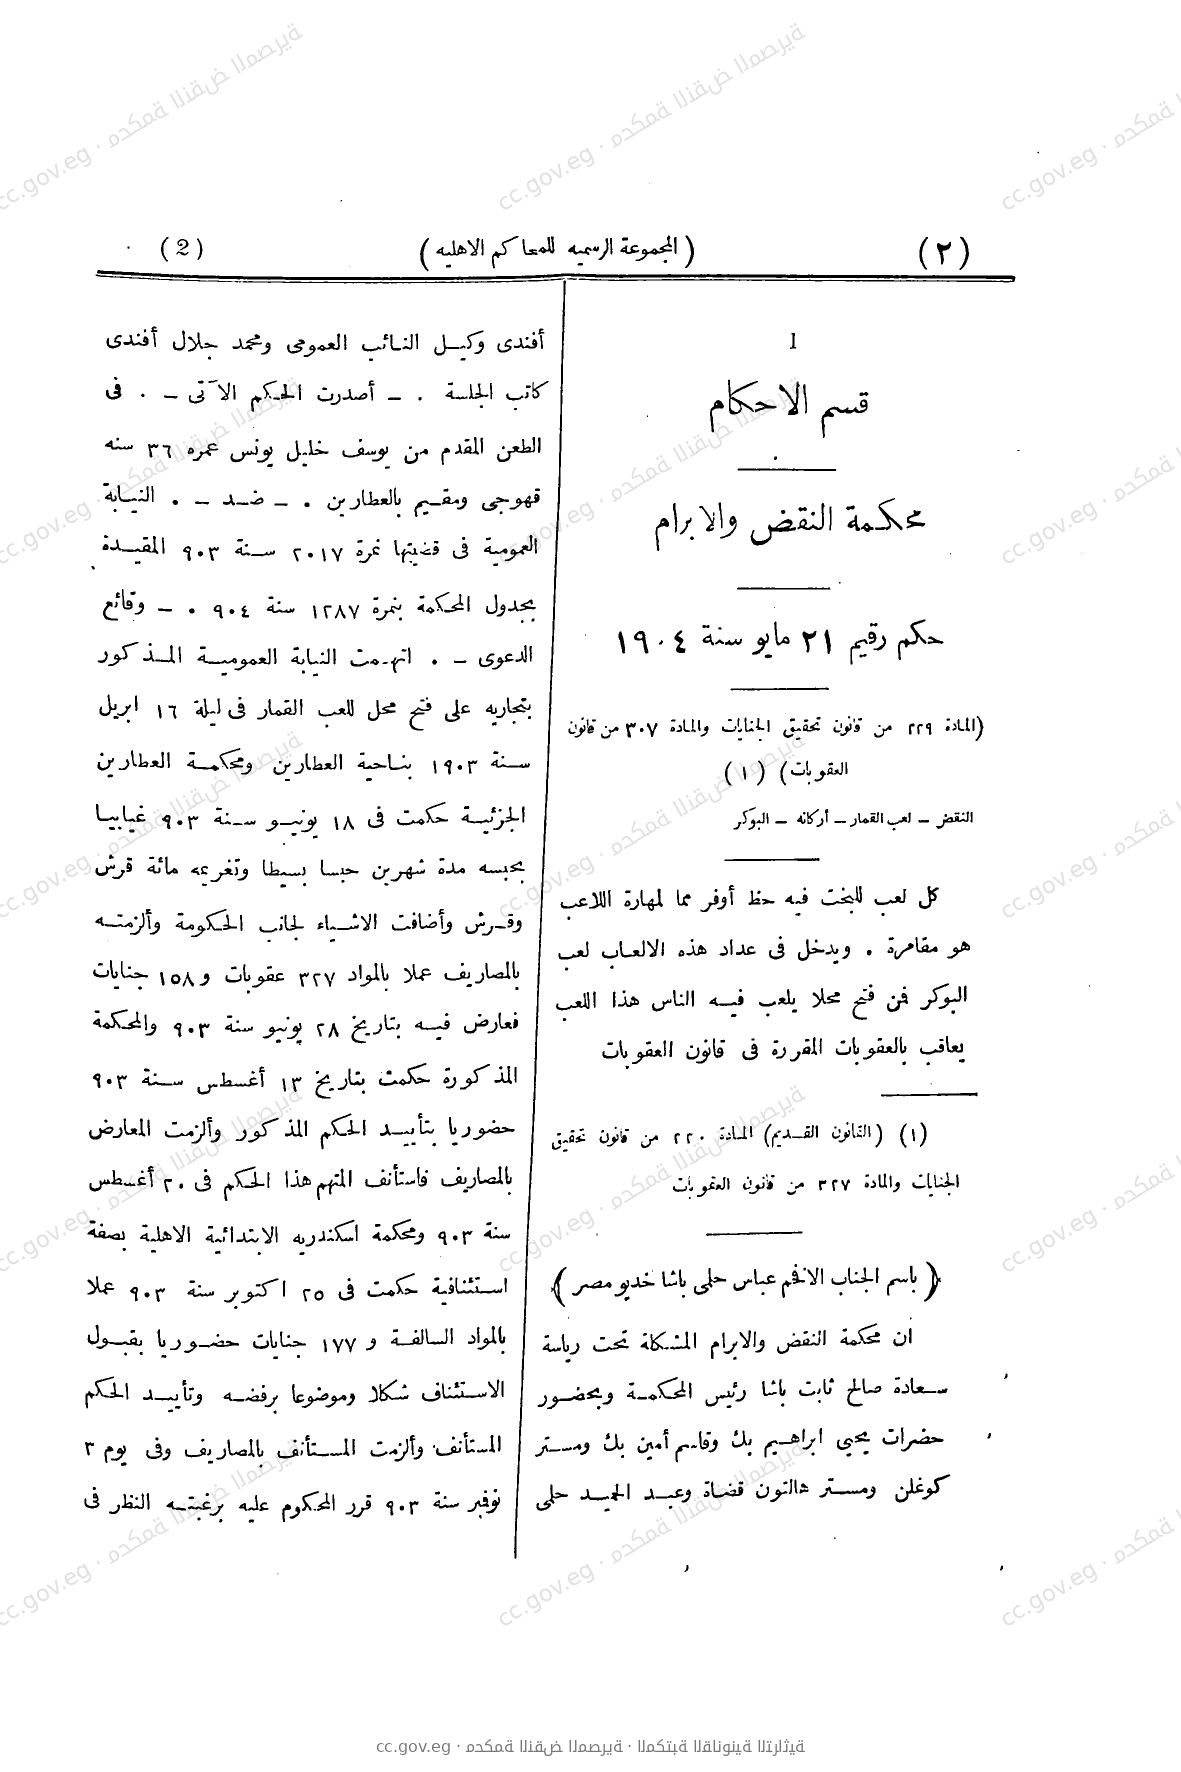 (٢) (المجموعة الرسميه للمحاكم الاهليه) (2)
1
قسم الاحكام
محكمة النقض والابرام
حكم رقيم ٢١ مايو سنة ١٩٠٤
(المادة ٢٢٩ من قانون تحقيق الجنايات والمادة ٣٠٧ من قانون
العقوبات) (١)
النقض – لعب القمار – أركانه – البوكر
كل لعب للبخت فيه حظ أوفر مما لمهارة اللاعب
هو مقامرة . ويدخل فى عداد هذه الالعاب لعب
البوكر فمن فتح محلا يلعب فيه الناس هذا اللعب
يعاقب بالعقوبات المقررة فى قانون العقوبات
(١) (القانون القديم) المادة ٢٢٠ من قانون تحقيق
الجنايات والمادة ٣٢٧ من قانون العقوبات
(باسم الجناب الافخم عباس حلمى باشا خديو مصر)
ان محكمة النقض والابرام المشكلة تحت رياسة
سعادة صالح ثابت باشا رئيس المحكمة وبحضور
حضرات يحيى ابراهيم بك وقاسم أمين بك ومستر
كوغلن ومستر هالتون قضاة وعبد الحميد حلمى
أفندى وكيل النائب العمومى ومحمد جلال أفندى
كاتب الجلسة . – أصدرت الحكم الآتى – . فى
الطعن المقدم من يوسف خليل يونس عمره ٣٦ سنه
قهوجى ومقيم بالعطارين . – ضد – . النيابة
العمومية فى قضيتها نمرة ٢٠١٧ سنة ٩٠٣ المقيدة
بجدول المحكمة بنمرة ١٢٨٧ سنة ٩٠٤ . – وقائع
الدعوى – . اتهمت النيابة العمومية المذكور
بتجاريه على فتح محل للعب القمار فى ليلة ١٦ ابريل
سنة ١٩٠٣ بناحية العطارين ومحكمة العطارين
الجزئية حكمت فى ١٨ يونيو سنة ٩٠٣ غيابيا
بحبسه مدة شهرين حبسا بسيطا وتغريمه مائة قرش
وقرش وأضافت الاشياء لجانب الحكومة وألزمته
بالمصاريف عملا بالمواد ٣٢٧ عقوبات و١٥٨ جنايات
فعارض فيه بتاريخ ٢٨ يونيو سنة ٩٠٣ والمحكمة
المذكورة حكمت بتاريخ ١٣ أغسطس سنة ٩٠٣
حضوريا بتأييد الحكم المذكور وألزمت المعارض
بالمصاريف فاستأنف المتهم هذا الحكم فى ٢٠ أغسطس
سنة ٩٠٣ ومحكمة اسكندريه الابتدائية الاهلية بصفة
استئنافية حكمت فى ٢٥ اكتوبر سنة ٩٠٣ عملا
بالمواد السالفة و ١٧٧ جنايات حضوريا بقبول
الاستئناف شكلا وموضوعا برفضه وتأييد الحكم
المستأنف وألزمت المستأنف بالمصاريف وفى يوم ٣
نوفمبر سنة ٩٠٣ قرر المحكوم عليه برغبته النظر فى
cc.gov.eg · محكمة النقض المصرية · المكتبة القانونية التراثية